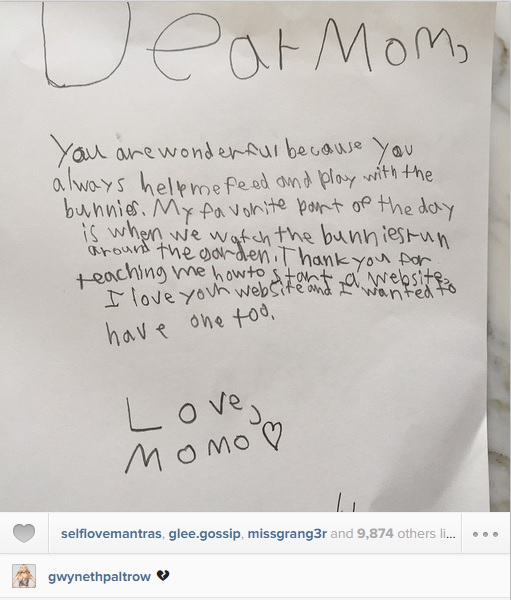 Dear Mom,
You are wonderful because you
always help me feed and play with the
bunnies. My favorite part of the day
is when we watch the bunnies run
around the garden. Thank you for
teaching me how to start a website.
I love your website and I wanted to
have one too.
Love,
MOMO♡
selflovemantras, glee.gossip, missgrang3r and 9,874 others li...
gwynethpaltrow 💔